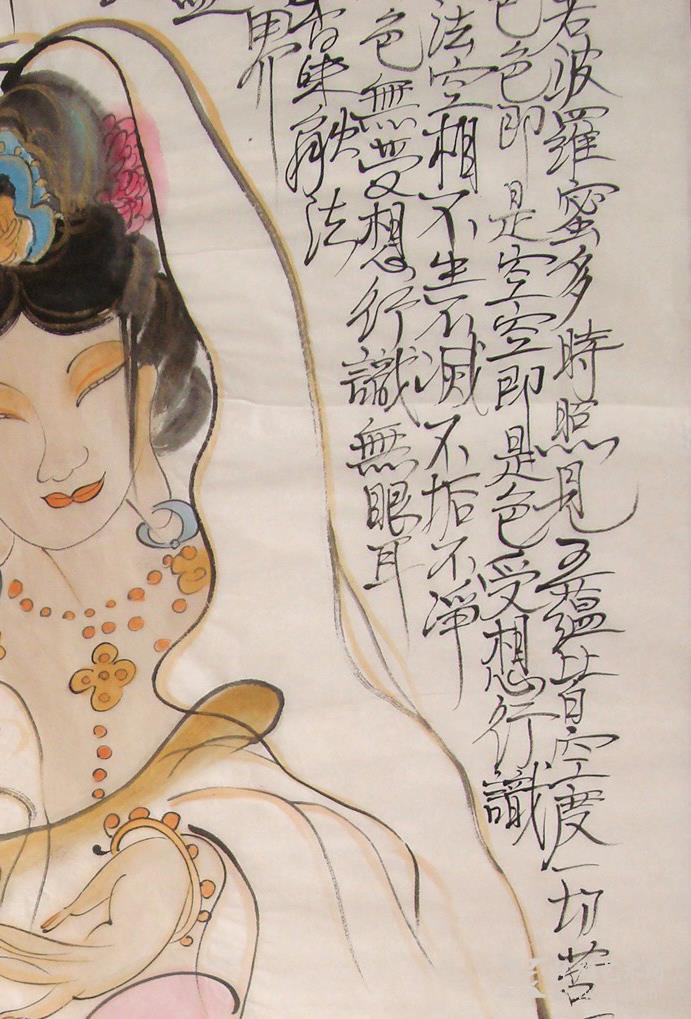 若波羅蜜多時照見五蘊皆空度一切苦
色色即是空空即是色受想行識
法空相不生不滅不垢不淨
色無受想行識無眼耳
香味觸法
界